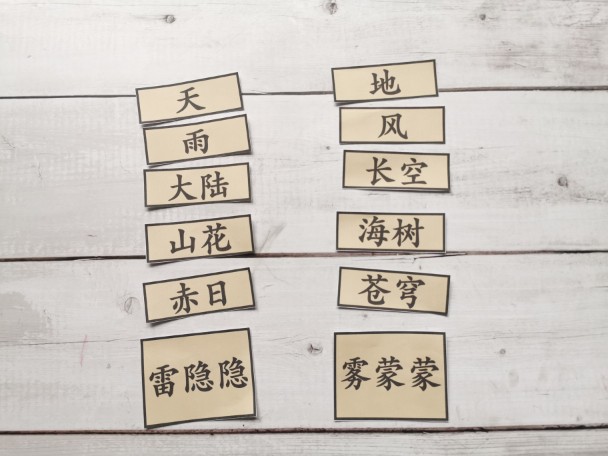 天 地
雨 风
大陆 长空
山花 海树
赤日 苍穹
雷隐隐 雾蒙蒙